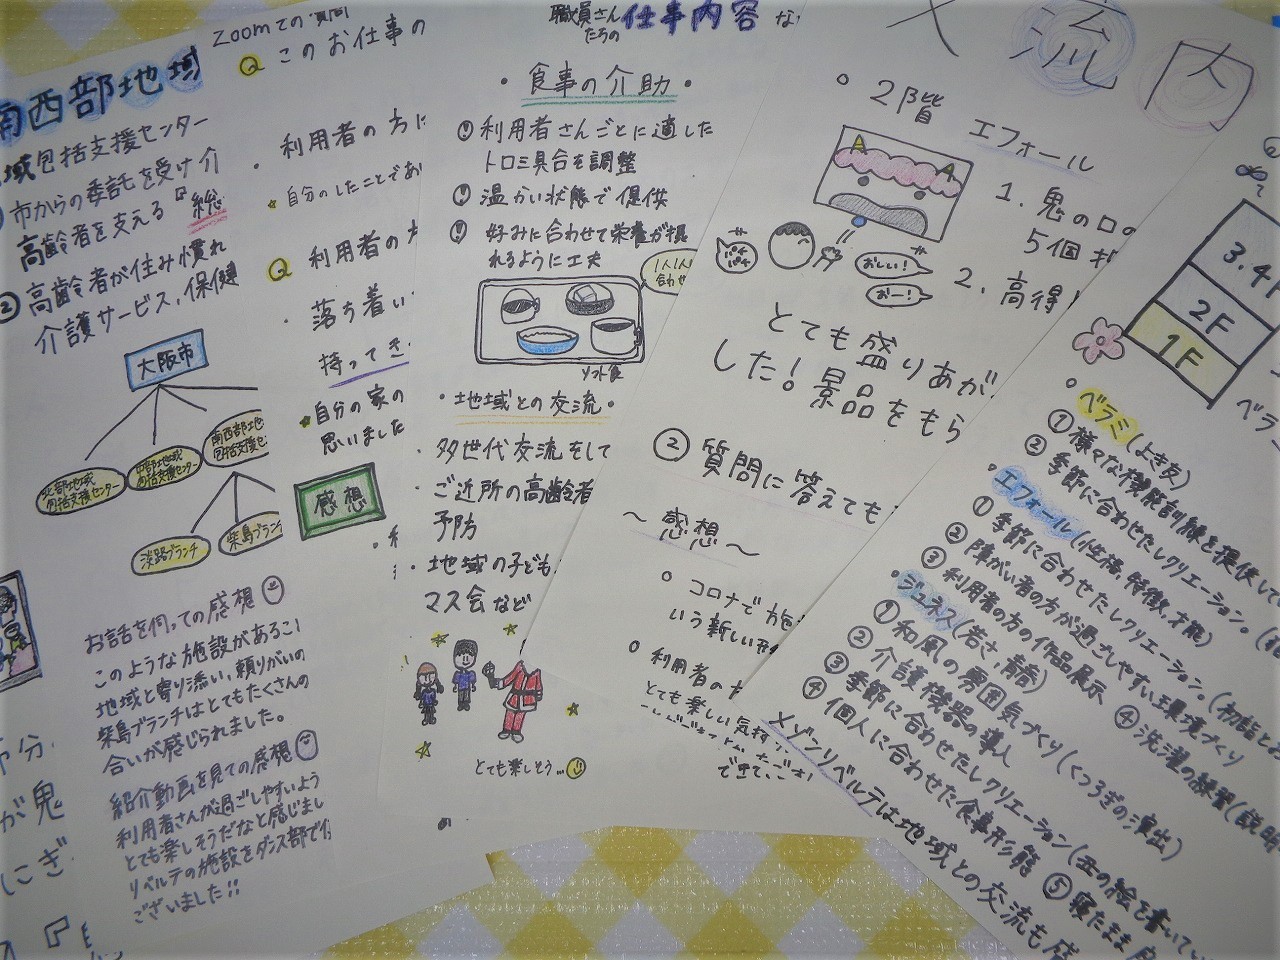 南西部地域
地域包括支援センター
市からの委託を受け介
高齢者を支える『総
② 高齢者が住み慣れ
介護サービス、保健
大阪市
北部地域
包括支援センター
中部地域
包括支援センター
南西部地
包括支援セ
淡路ブランチ
柴島ブラン
お話を伺っての感想
このような施設があるこ
地域と寄り添い、頼りがいの
柴島ブランチはとてもたくさんの
合いが感じられました。
紹介動画を見ての感想
利用者さんが過ごしやすいよう
とても楽しそうだなと感じまし
リベルテの施設をダンス部で
ございました!!
が鬼
にぎ
Zoomでの質問
Q このお仕事の
・利用者の方に
自分のしたことであ
Q 利用者の
・落ち着い
持ってき
自分の家の
思いました
感想
職員さんたちの仕事内容
・食事の介助・
! 利用者さんごとに適した
トロミ具合を調整
! 温かい状態で提供
! 好みに合わせて栄養が摂
れるように工夫
1人1人
合わせ
ソフト食
・地域との交流・
・多世代交流をして
・ご近所の高齢者
予防
・地域の子ども
マス会など
とても楽しそう…
交流内
○ 2階 エフォール
1. 鬼の口の
5個
パチパチ
おしい!
おー!
2. 高得
とても盛りあが
した! 景品をもら
② 質問に答えても
〜感想〜
○ コロナで施
いう新しい形
○ 利用者の
とても楽しい気持
3.4F
2F
1F
・ベラミ(よき友)
① 様々な機能訓練を提供して
② 季節に合わせたレクリエーション。
・エフォール(性格、特徴、才能)
① 季節に合わせたレクリエーション。(初詣
② 障がい者の方が過ごしやすい環境づくり
③ 利用者の方の作品展示 ④ 洗濯の練習(説明
・ジュネス(若さ、青春)
① 和風の雰囲気づくり(くつろぎの演出)
② 介護機器の導入
③ 季節に合わせたレクリエーション(丑の絵を書いてい
④ 個人に合わせた食事形態 ⑤ 寝たまま
メゾンリベルテは地域との交流も盛